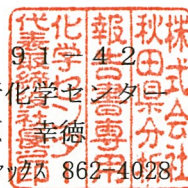 91-42
化学センター
幸徳
ァックス 862-4028
株式会社
秋田県分析
報告書専用
化学センター